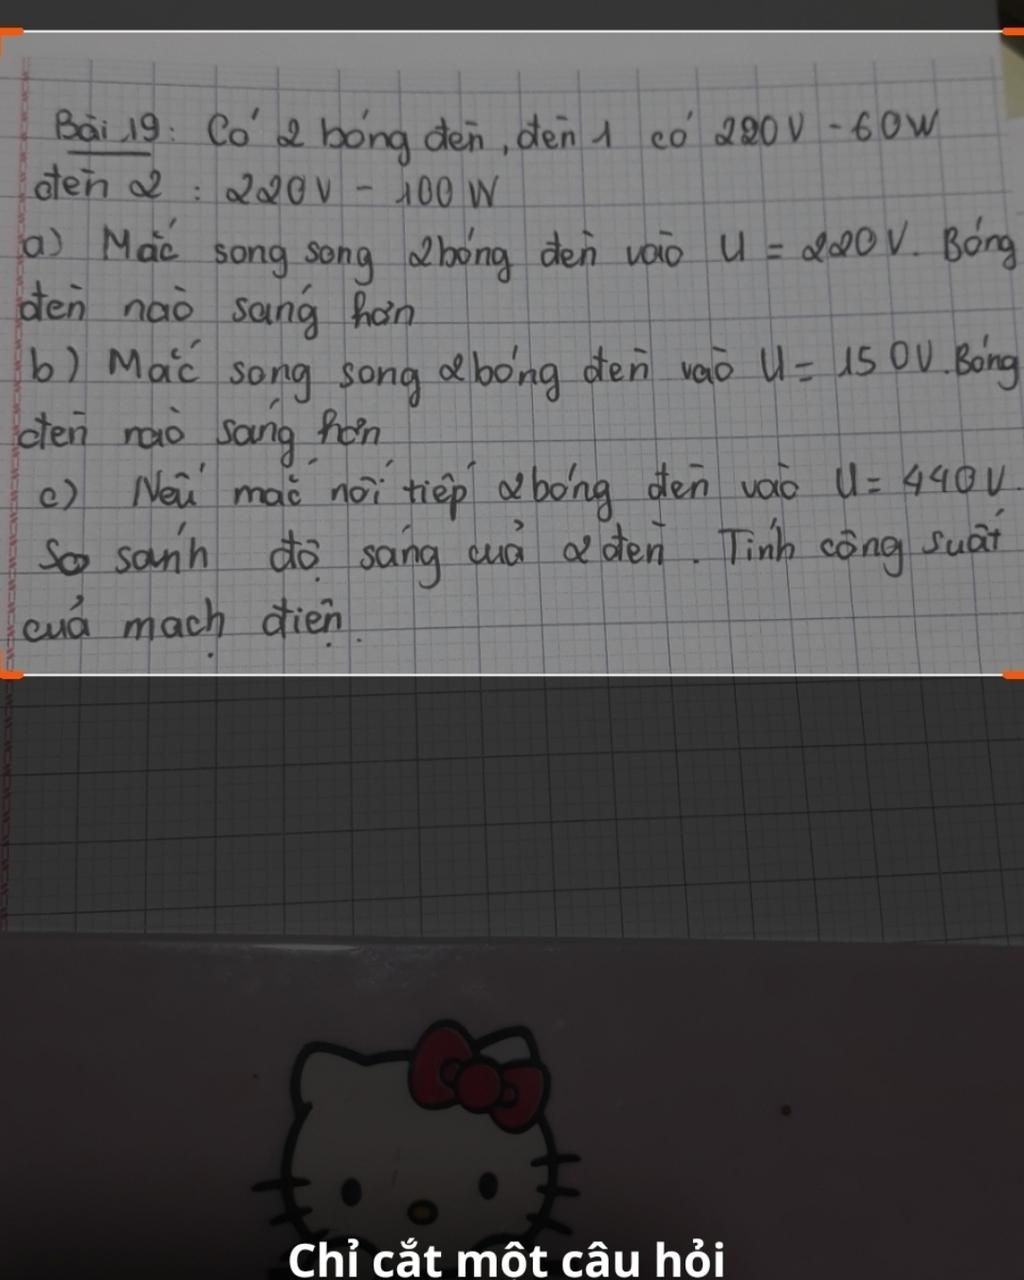 Bài 19: Có 2 bóng đèn, đèn 1 có 220V - 60W
đèn 2 : 220V - 100W
a) Mắc song song 2 bóng đèn vào U = 220V. Bóng
đèn nào sáng hơn
b) Mắc song song 2 bóng đèn vào U = 150V. Bóng
đèn nào sáng hơn
c) Nếu mắc nối tiếp 2 bóng đèn vào U = 440V.
So sánh độ sáng của 2 đèn. Tính công suất
của mạch điện.
Chỉ cắt một câu hỏi